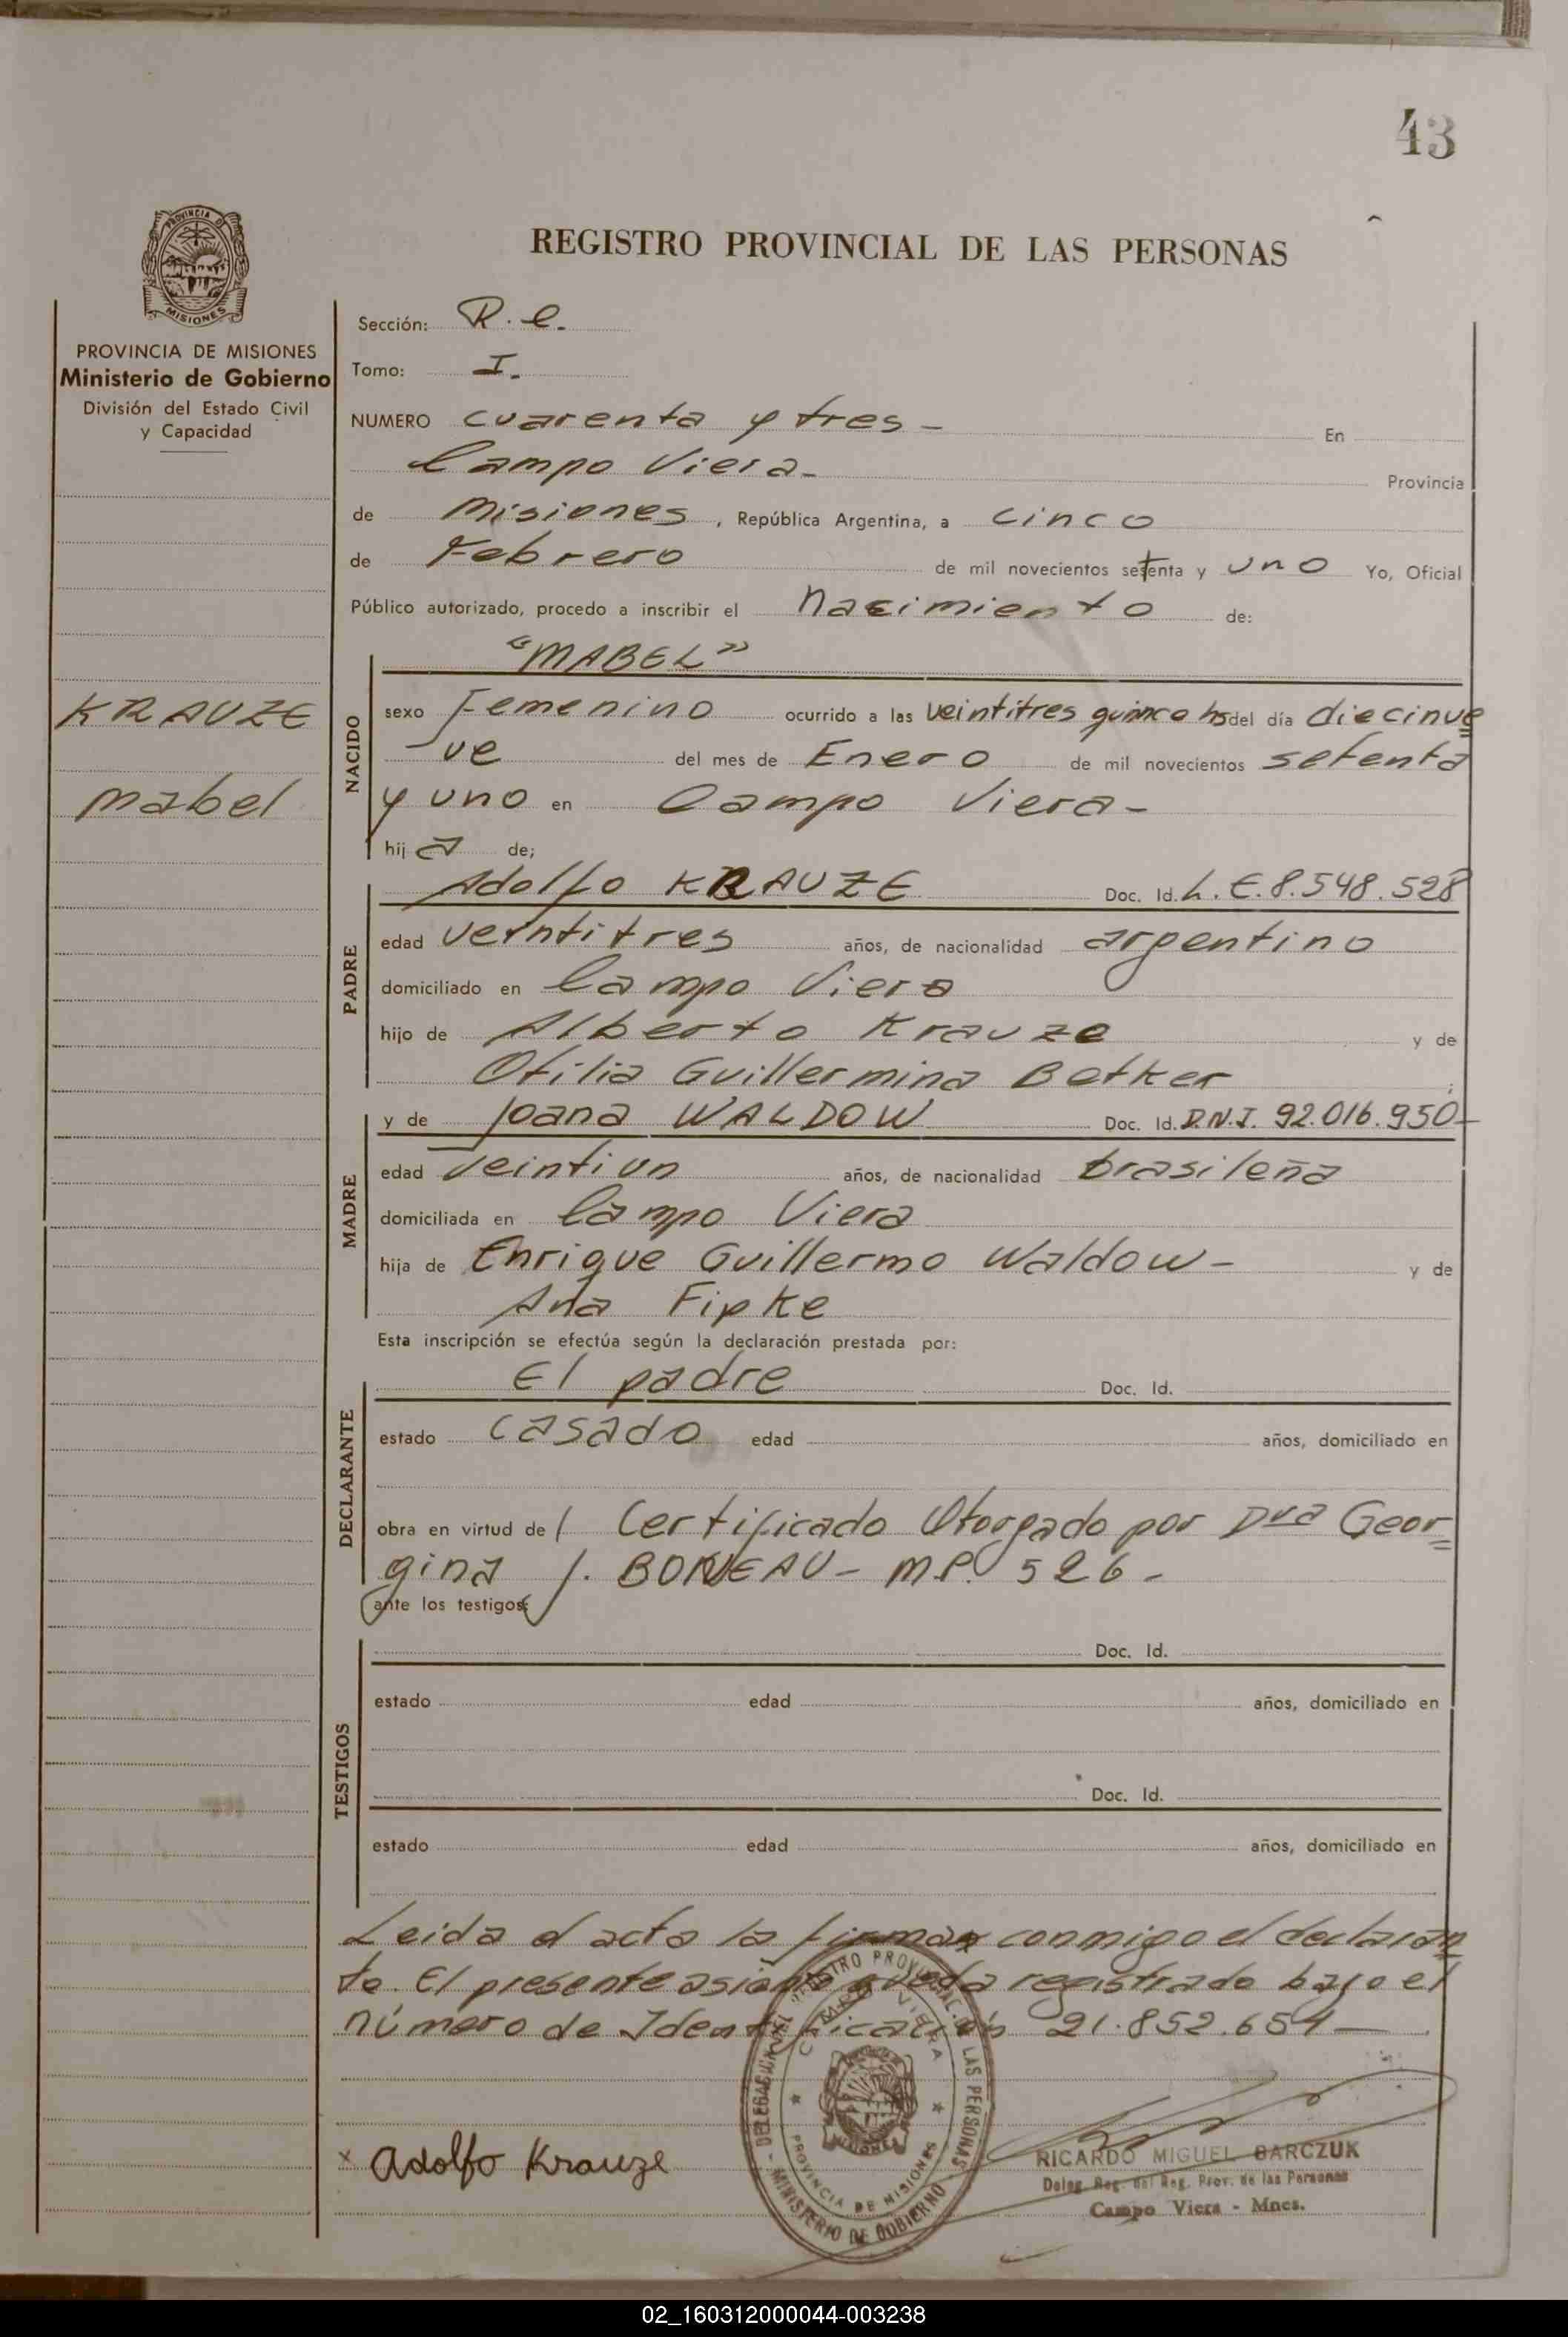 43
REGISTRO PROVINCIAL DE LAS PERSONAS
PROVINCIA DE MISIONES
Ministerio de Gobierno
División del Estado Civil
y Capacidad
KRAUZE
Mabel
Sección: R. C.
Tomo: I.
NUMERO cuarenta y tres - En
Campo Viera - Provincia
de Misiones, República Argentina, a cinco
de Febrero de mil novecientos setenta y uno Yo, Oficial
Público autorizado, procedo a inscribir el nacimiento de:
NACIDO
"MABEL"
sexo Femenino ocurrido a las veintitres quince hs del día diecinue
ve del mes de Enero de mil novecientos setenta
y uno en Campo Viera -
hija de;
PADRE
Adolfo KRAUZE Doc. Id. L. E. 8.548.528
edad veintitres años, de nacionalidad argentino
domiciliado en Campo Viera
hijo de Alberto Krauze y de
Otilia Guillermina Betker
MADRE
y de Joana WALDOW Doc. Id. D.N.I. 92.016.950-
edad veintiun años, de nacionalidad brasileña
domiciliada en Campo Viera
hija de Enrique Guillermo Waldow - y de
Ana Fipke
Esta inscripción se efectúa según la declaración prestada por:
DECLARANTE
El padre Doc. Id.
estado casado edad años, domiciliado en
obra en virtud de / Certificado Otorgado por Dra Geor=
gina J. BONEAU - M.P. 526 -
(ante los testigos)
TESTIGOS
Doc. Id.
estado edad años, domiciliado en
Doc. Id.
estado edad años, domiciliado en
Leida el acta la firman conmigo el declaran
te. El presente asiento queda registrado bajo el
número de Identificación 21.852.654 -
x Adolfo Krauze
DELEGACION DEL REGISTRO PROVINCIAL DE LAS PERSONAS - MINISTERIO DE GOBIERNO
CAMPO VIERA
PROVINCIA DE MISIONES
RICARDO MIGUEL BARCZUK
Deleg. Reg. del Reg. Prov. de las Personas
Campo Viera - Mnes.
02_160312000044-003238